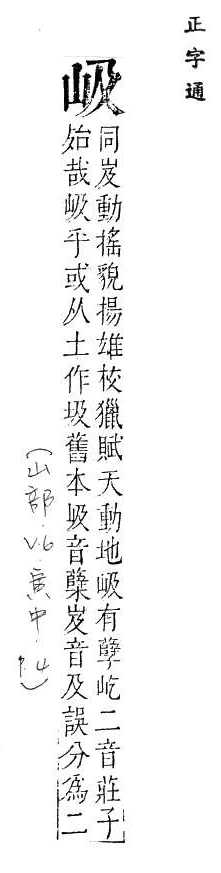 正字通
岋
同岌動搖貌揚雄校獵賦天動地岋有孽屹二音莊子
殆哉岋乎或从土作圾舊本岋音櫱岌音及誤分為二
(山部.V.6.寅中.P.4)